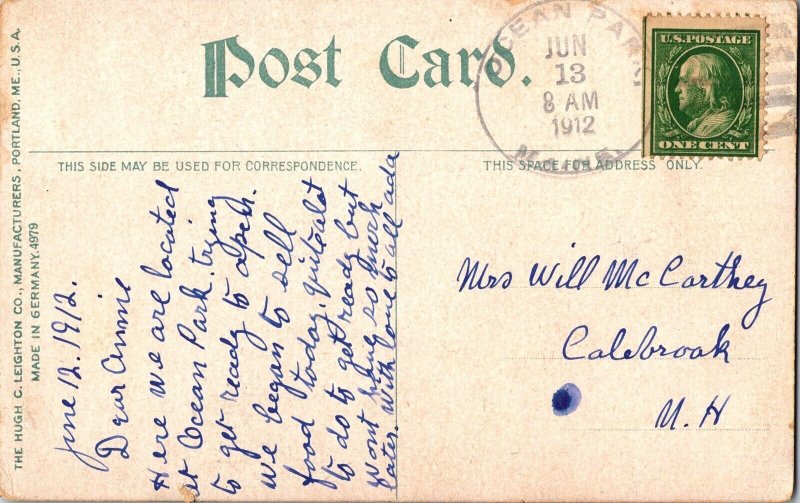 Post Card.
OCEAN PARK
JUN
13
8 AM
1912
U.S. POSTAGE
ONE CENT
THIS SIDE MAY BE USED FOR CORRESPONDENCE.
THIS SPACE FOR ADDRESS ONLY.
THE HUGH C. LEIGHTON CO., MANUFACTURERS, PORTLAND, ME., U.S.A.
MADE IN GERMANY. 4979
June 12. 1912.
Dear Annie
Here we are located
at Ocean Park. trying
to get ready to open.
We began to sell
food today. Quite alot
to do to get ready but
wont have so much
later. With love to all Ada
Mrs Will McCarthey
Colebrook
N. H